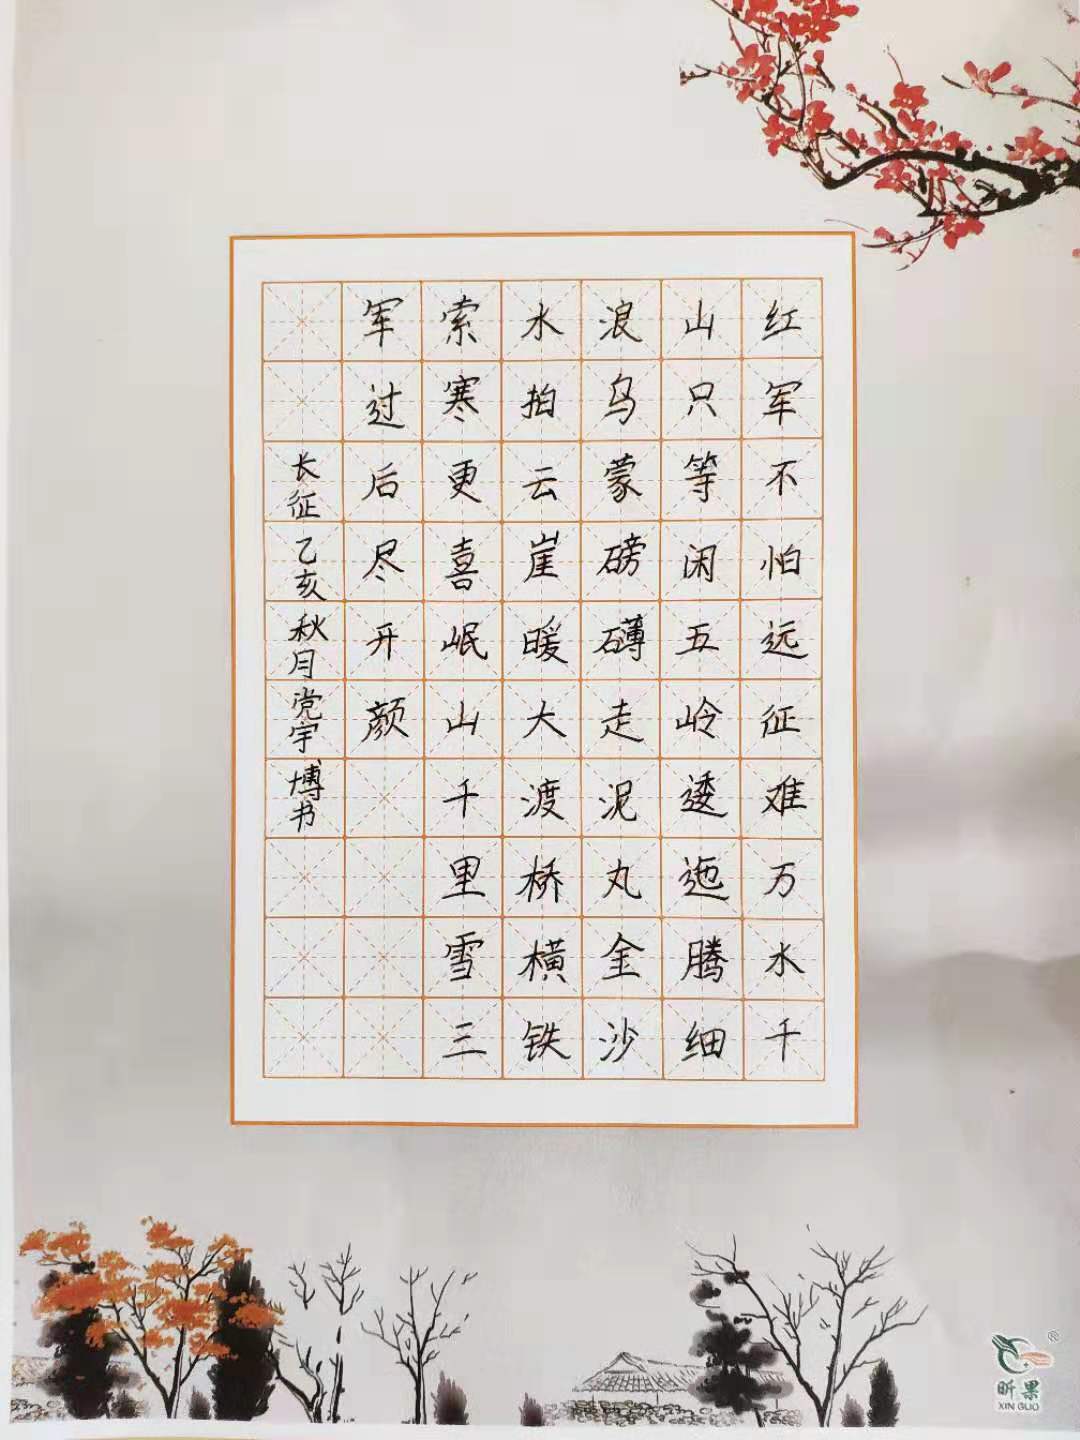 红军不怕远征难万水千
山只等闲五岭逶迤腾细
浪乌蒙磅礴走泥丸金沙
水拍云崖暖大渡桥横铁
索寒更喜岷山千里雪三
军过后尽开颜
长征乙亥秋月党宇博书
昕果
XIN GUO
®